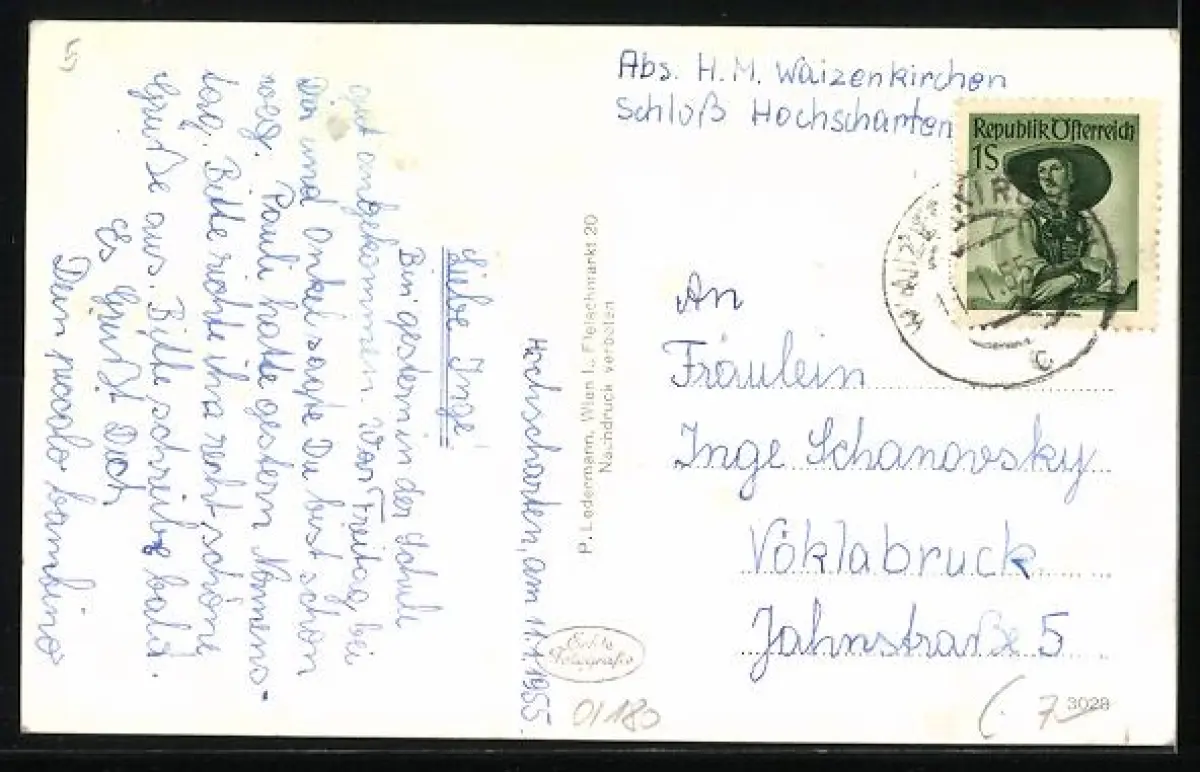 Abs. H. M. Waizenkirchen
Schloß Hochscharten
Republik Österreich
1S
WAIZENKIRCHEN
C
An
Fräulein
Inge Schanovsky
Vöklabruck
Jahnstraße 5
3028
7
P. Ledermann, Wien I., Fleischmarkt 20
Nachdruck verboten
Echte
Fotografie
01180
5
Hochscharten, am 11.1.1955
Liebe Inge!
Bin gestern in der Schule
gut angekommen. War Freitag bei
Dir und Onkel sagte Du bist schon
weg. Pauli hatte gestern Namens-
tag. Bitte richte ihm recht schöne
Grüße aus. Bitte, schreibe bald.
Es Grüßt Dich
Dein piccolo bambino